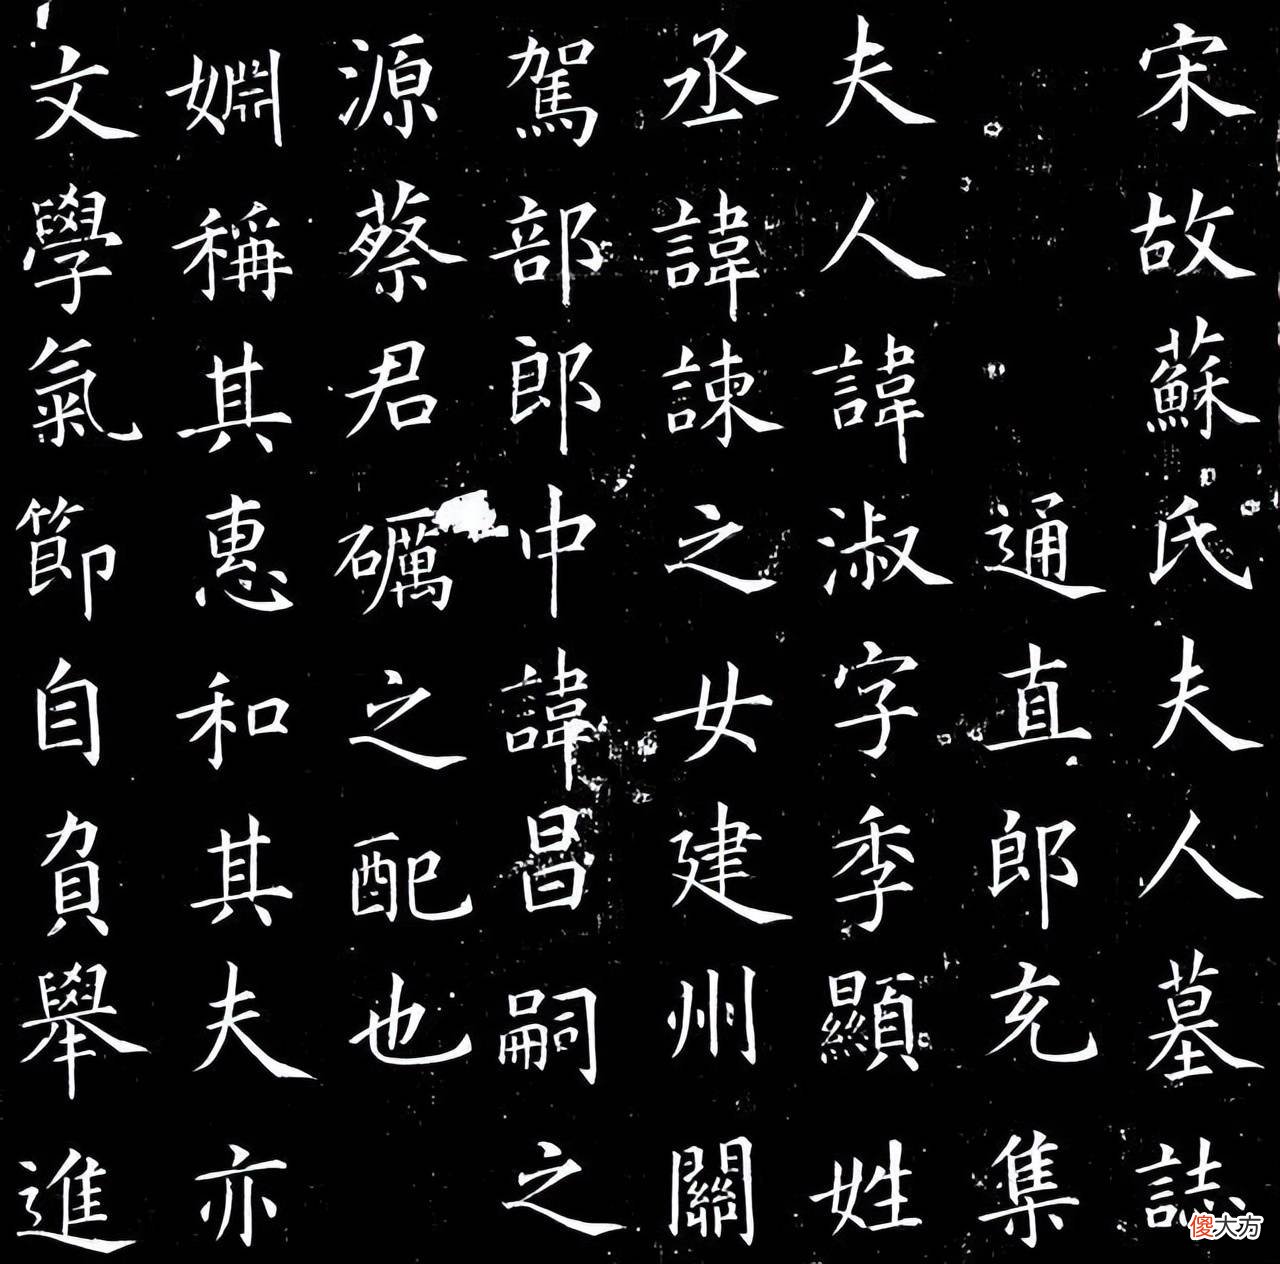 宋故蘇氏夫人墓誌
通直郎充集
夫人諱淑字季顯姓
丞諱諫之女建州關
駕部郎中諱昌嗣之
源蔡君礪之配也
婣稱其惠和其夫亦
文學氣節自負舉進
傻大方